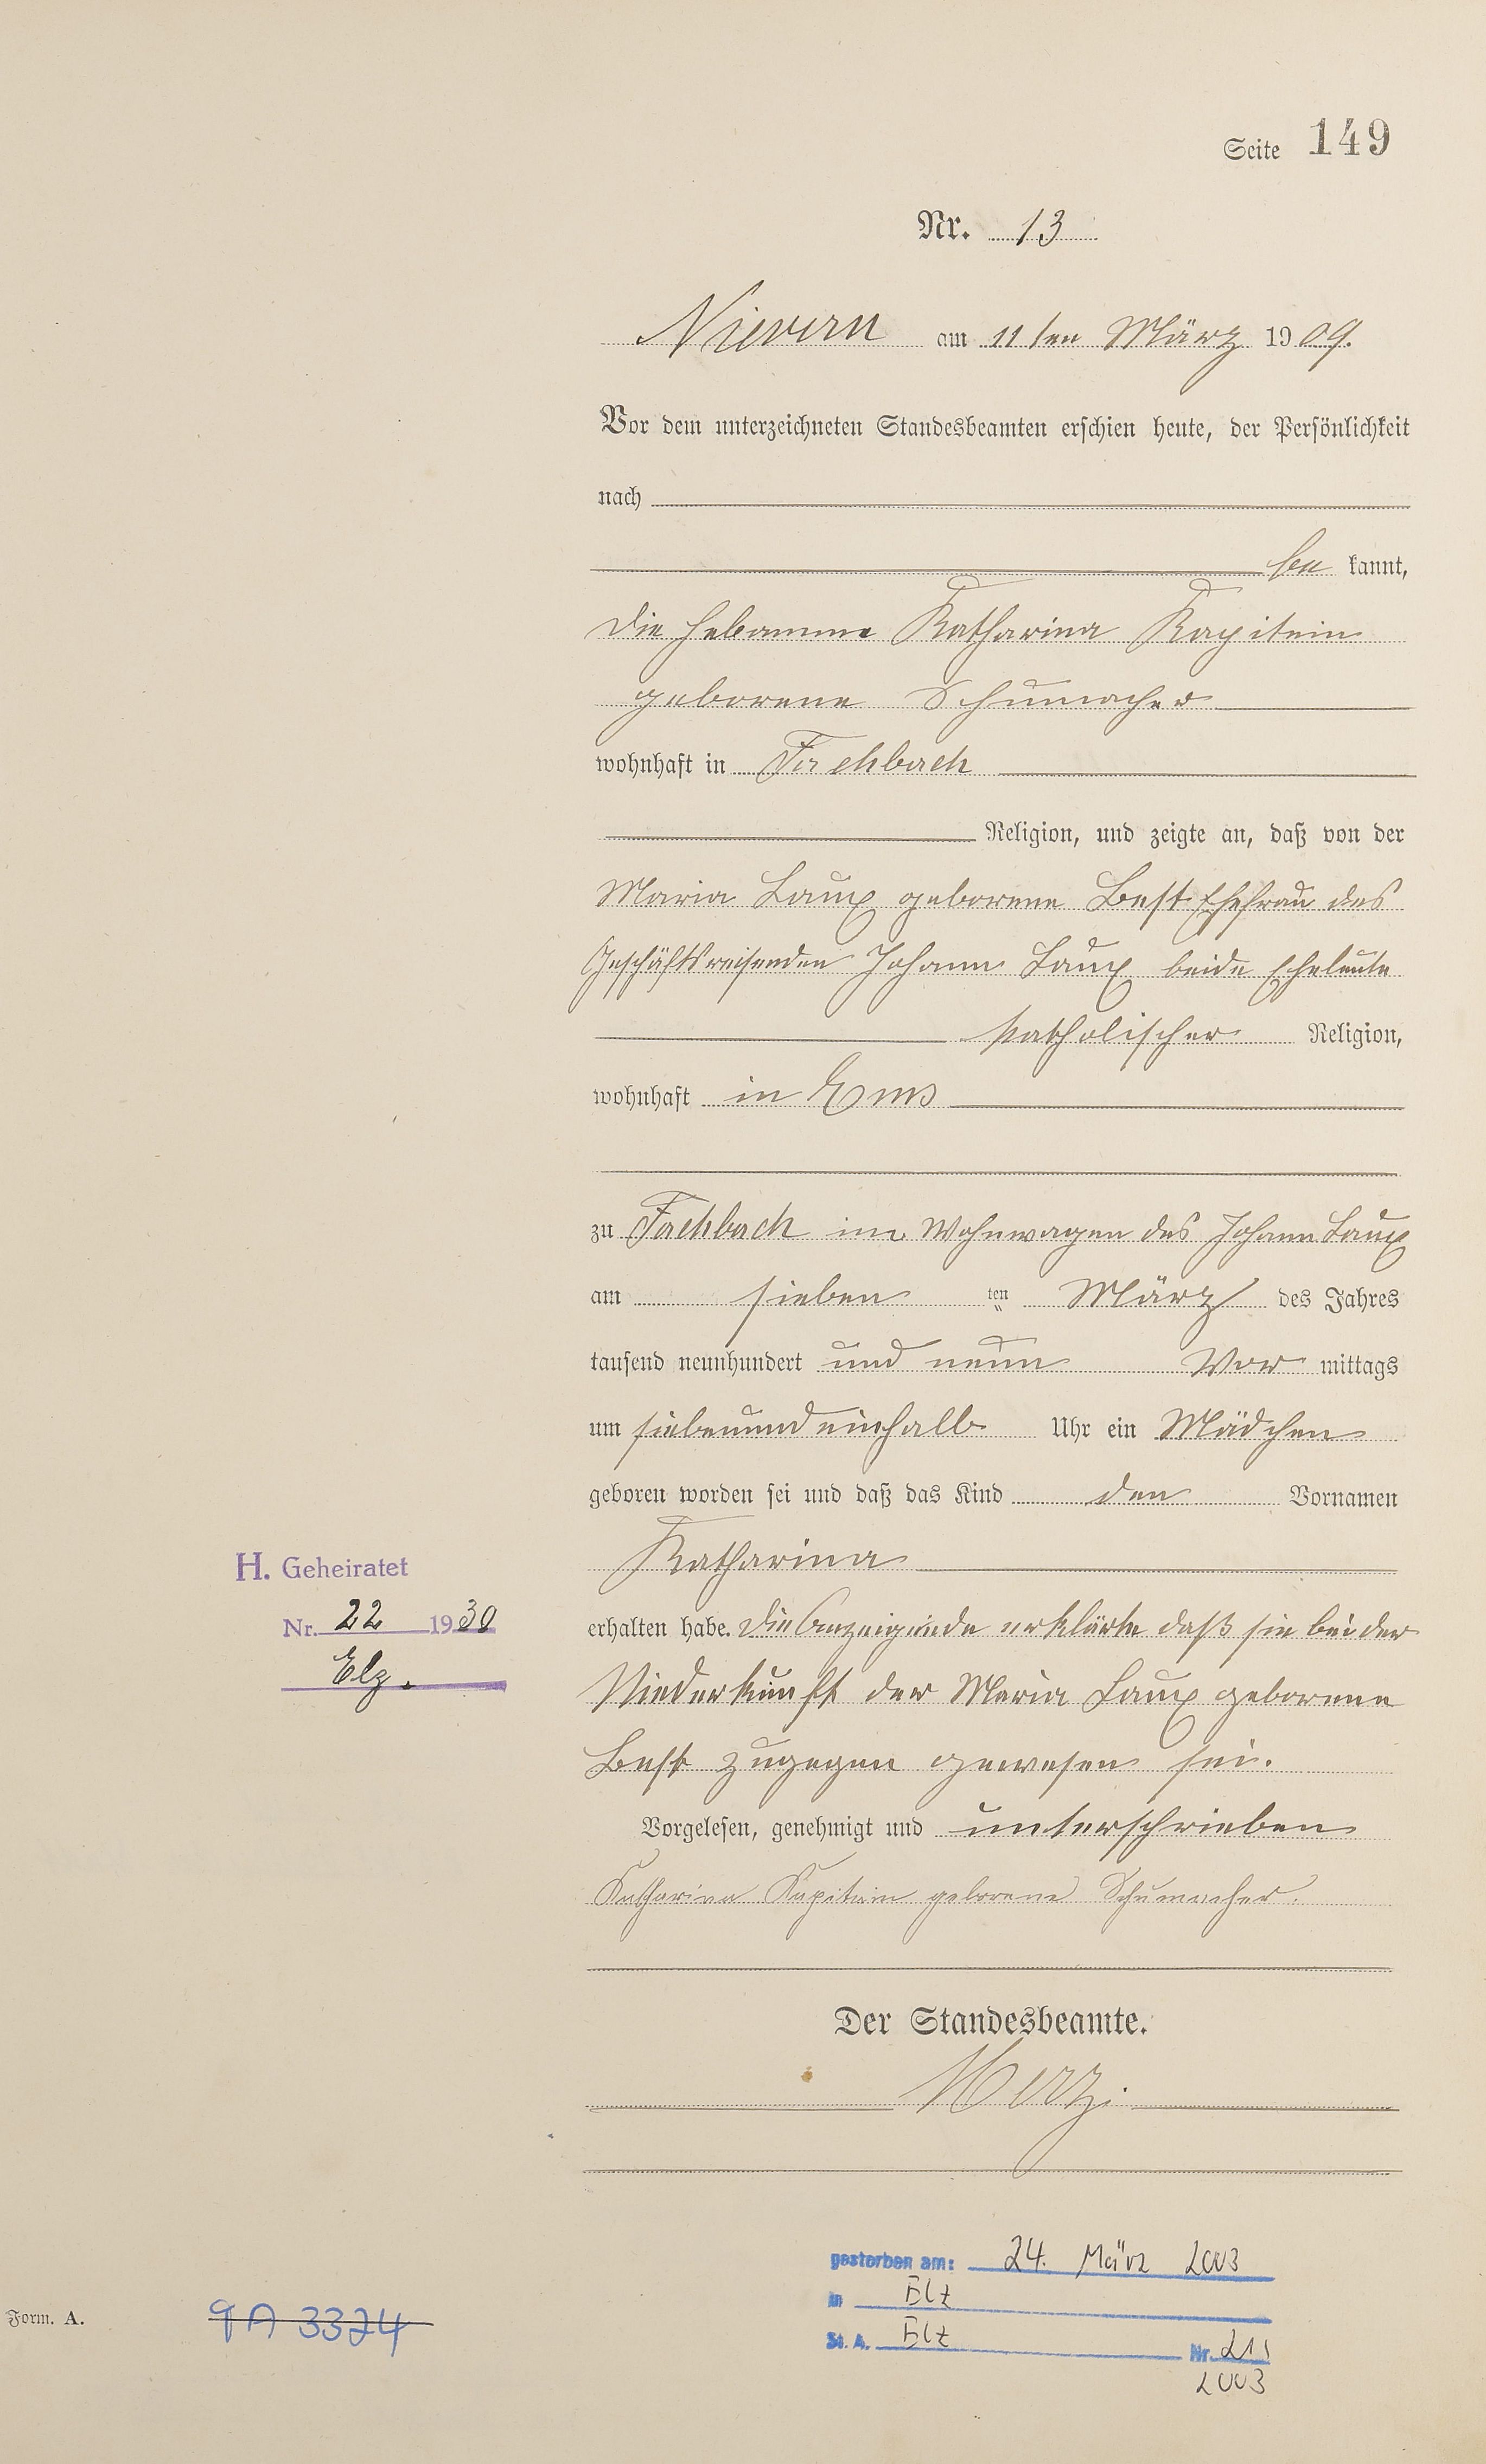 Seite 149
Nr. 13
Nievern am 11ten März 1909.
Vor dem unterzeichneten Standesbeamten erschien heute, der Persönlichkeit
nach
be kannt,
die Hebamme Katharina Kapitein
geborene Schumacher
wohnhaft in Fachbach
Religion, und zeigte an, daß von der
Maria Laux geborene Best Ehefrau des
Geschäftsreisenden Johann Laux beide Eheleute
katholischer Religion,
wohnhaft in Ems
zu Fachbach im Wohnwagen des Johann Laux
am sieben ten März des Jahres
tausend neunhundert und neun Vor mittags
um siebenundeinhalb Uhr ein Mädchen
geboren worden sei und daß das Kind den Vornamen
Katharina
H. Geheiratet
Nr. 22 1930
Elz.
erhalten habe. Die Anzeigende erklärte daß sie bei der
Niederkunft der Maria Laux geborene
Best zugegen gewesen sei.
Vorgelesen, genehmigt und unterschrieben
Katharina Kapitein geborene Schumacher.
Der Standesbeamte.
Merz.
gestorben am: 24. März 2003
in Elz
St. A. Elz Nr. 211
2003
Form. A.
9A 3324